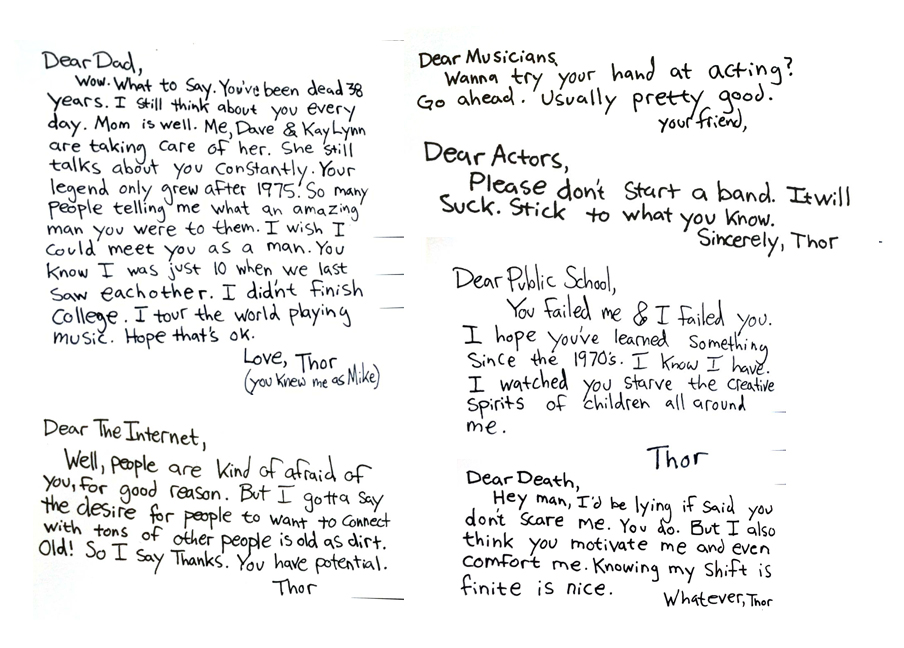 Dear Dad,
Wow. What to Say. You've been dead 38
years. I still think about you every
day. Mom is well. Me, Dave & KayLynn
are taking care of her. She still
talks about you constantly. Your
legend only grew after 1975! So many
People telling me what an amazing
man you were to them. I wish I
could meet you as a man. You
Know I was just 10 when we last
saw eachother. I didn't finish
College. I tour the world playing
music. Hope that's ok.
Love, Thor
(you knew me as Mike)
Dear The Internet,
Well, people are kind of afraid of
you, for good reason. But I gotta say
the desire for people to want to connect
with tons of other people is old as dirt.
Old! So I say Thanks. You have potential.
Thor
Dear Musicians,
Wanna try your hand at acting?
Go ahead. Usually pretty good.
your friend,
Dear Actors,
Please don't start a band. It will
suck. Stick to what you know.
Sincerely, Thor
Dear Public School,
You failed me & I failed you.
I hope you've learned something
since the 1970's. I know I have.
I watched you starve the creative
spirits of children all around
me.
Thor
Dear Death,
Hey man, I'd be lying if said you
don't scare me. You do. But I also
think you motivate me and even
comfort me. Knowing my shift is
finite is nice.
Whatever, Thor